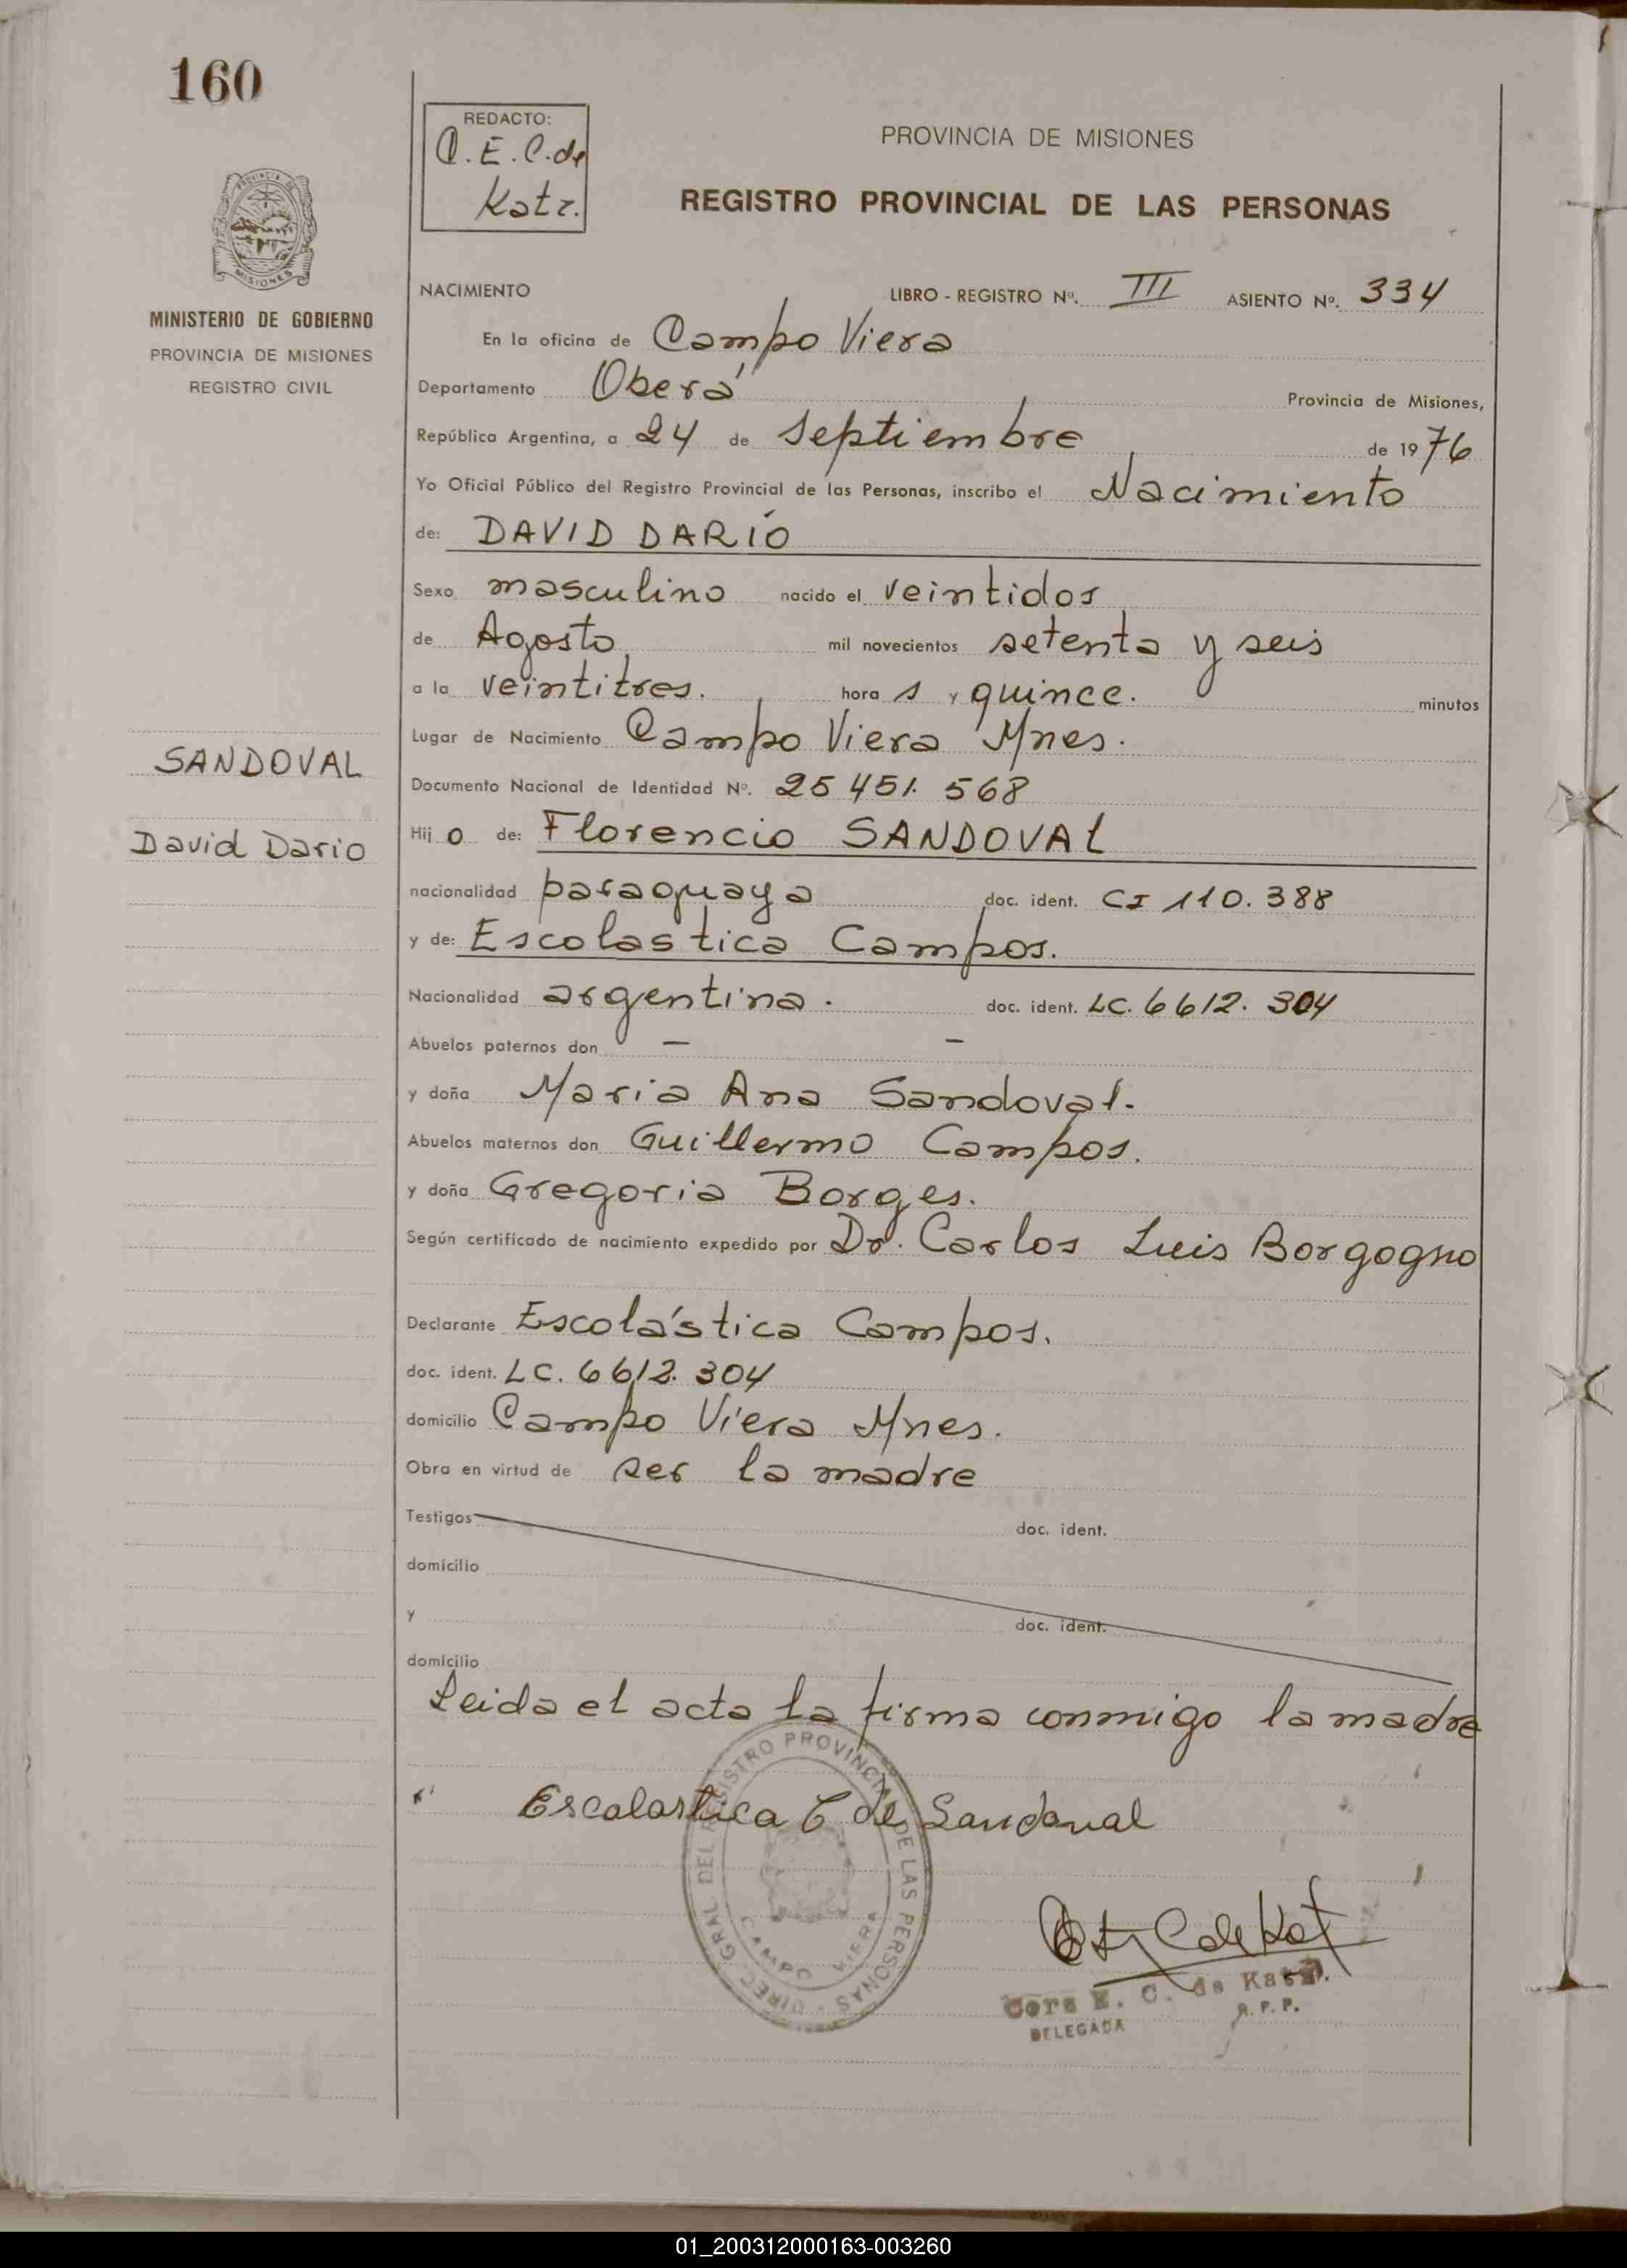 160
REDACTO:
C. E. C. de
Katz.
PROVINCIA DE MISIONES
REGISTRO PROVINCIAL DE LAS PERSONAS
PROVINCIA DE
MISIONES
MINISTERIO DE GOBIERNO
PROVINCIA DE MISIONES
REGISTRO CIVIL
NACIMIENTO LIBRO - REGISTRO Nº. III ASIENTO Nº. 334
En la oficina de Campo Viera
Departamento Oberá Provincia de Misiones,
República Argentina, a 24 de Septiembre de 1976
Yo Oficial Público del Registro Provincial de las Personas, inscribo el Nacimiento
de: DAVID DARÍO
Sexo masculino nacido el veintidos
de Agosto mil novecientos setenta y seis
a la veintitres. hora s y quince. minutos
Lugar de Nacimiento Campo Viera Mnes.
SANDOVAL
Documento Nacional de Identidad Nº. 25 451. 568
David Dario
Hij o de: Florencio SANDOVAL
nacionalidad paraguaya doc. ident. CI 110.388
y de: Escolastica Campos.
Nacionalidad argentina. doc. ident. LC. 6612. 304
Abuelos paternos don — —
y doña Maria Ana Sandoval.
Abuelos maternos don Guillermo Campos.
y doña Gregoria Borges.
Según certificado de nacimiento expedido por Dr. Carlos Luis Borgogno
Declarante Escolástica Campos.
doc. ident. LC. 6612. 304
domicilio Campo Viera Mnes.
Obra en virtud de ser la madre
Testigos doc. ident.
domicilio
y doc. ident.
domicilio
Leida el acta la firma conmigo la madre
Escalastica C de Sandoval
DIREC. GRAL DEL REGISTRO PROVINCIAL DE LAS PERSONAS
CAMPO VIERA
E. C. de Katz.
DELEGADA R. P. P.
01_200312000163-003260